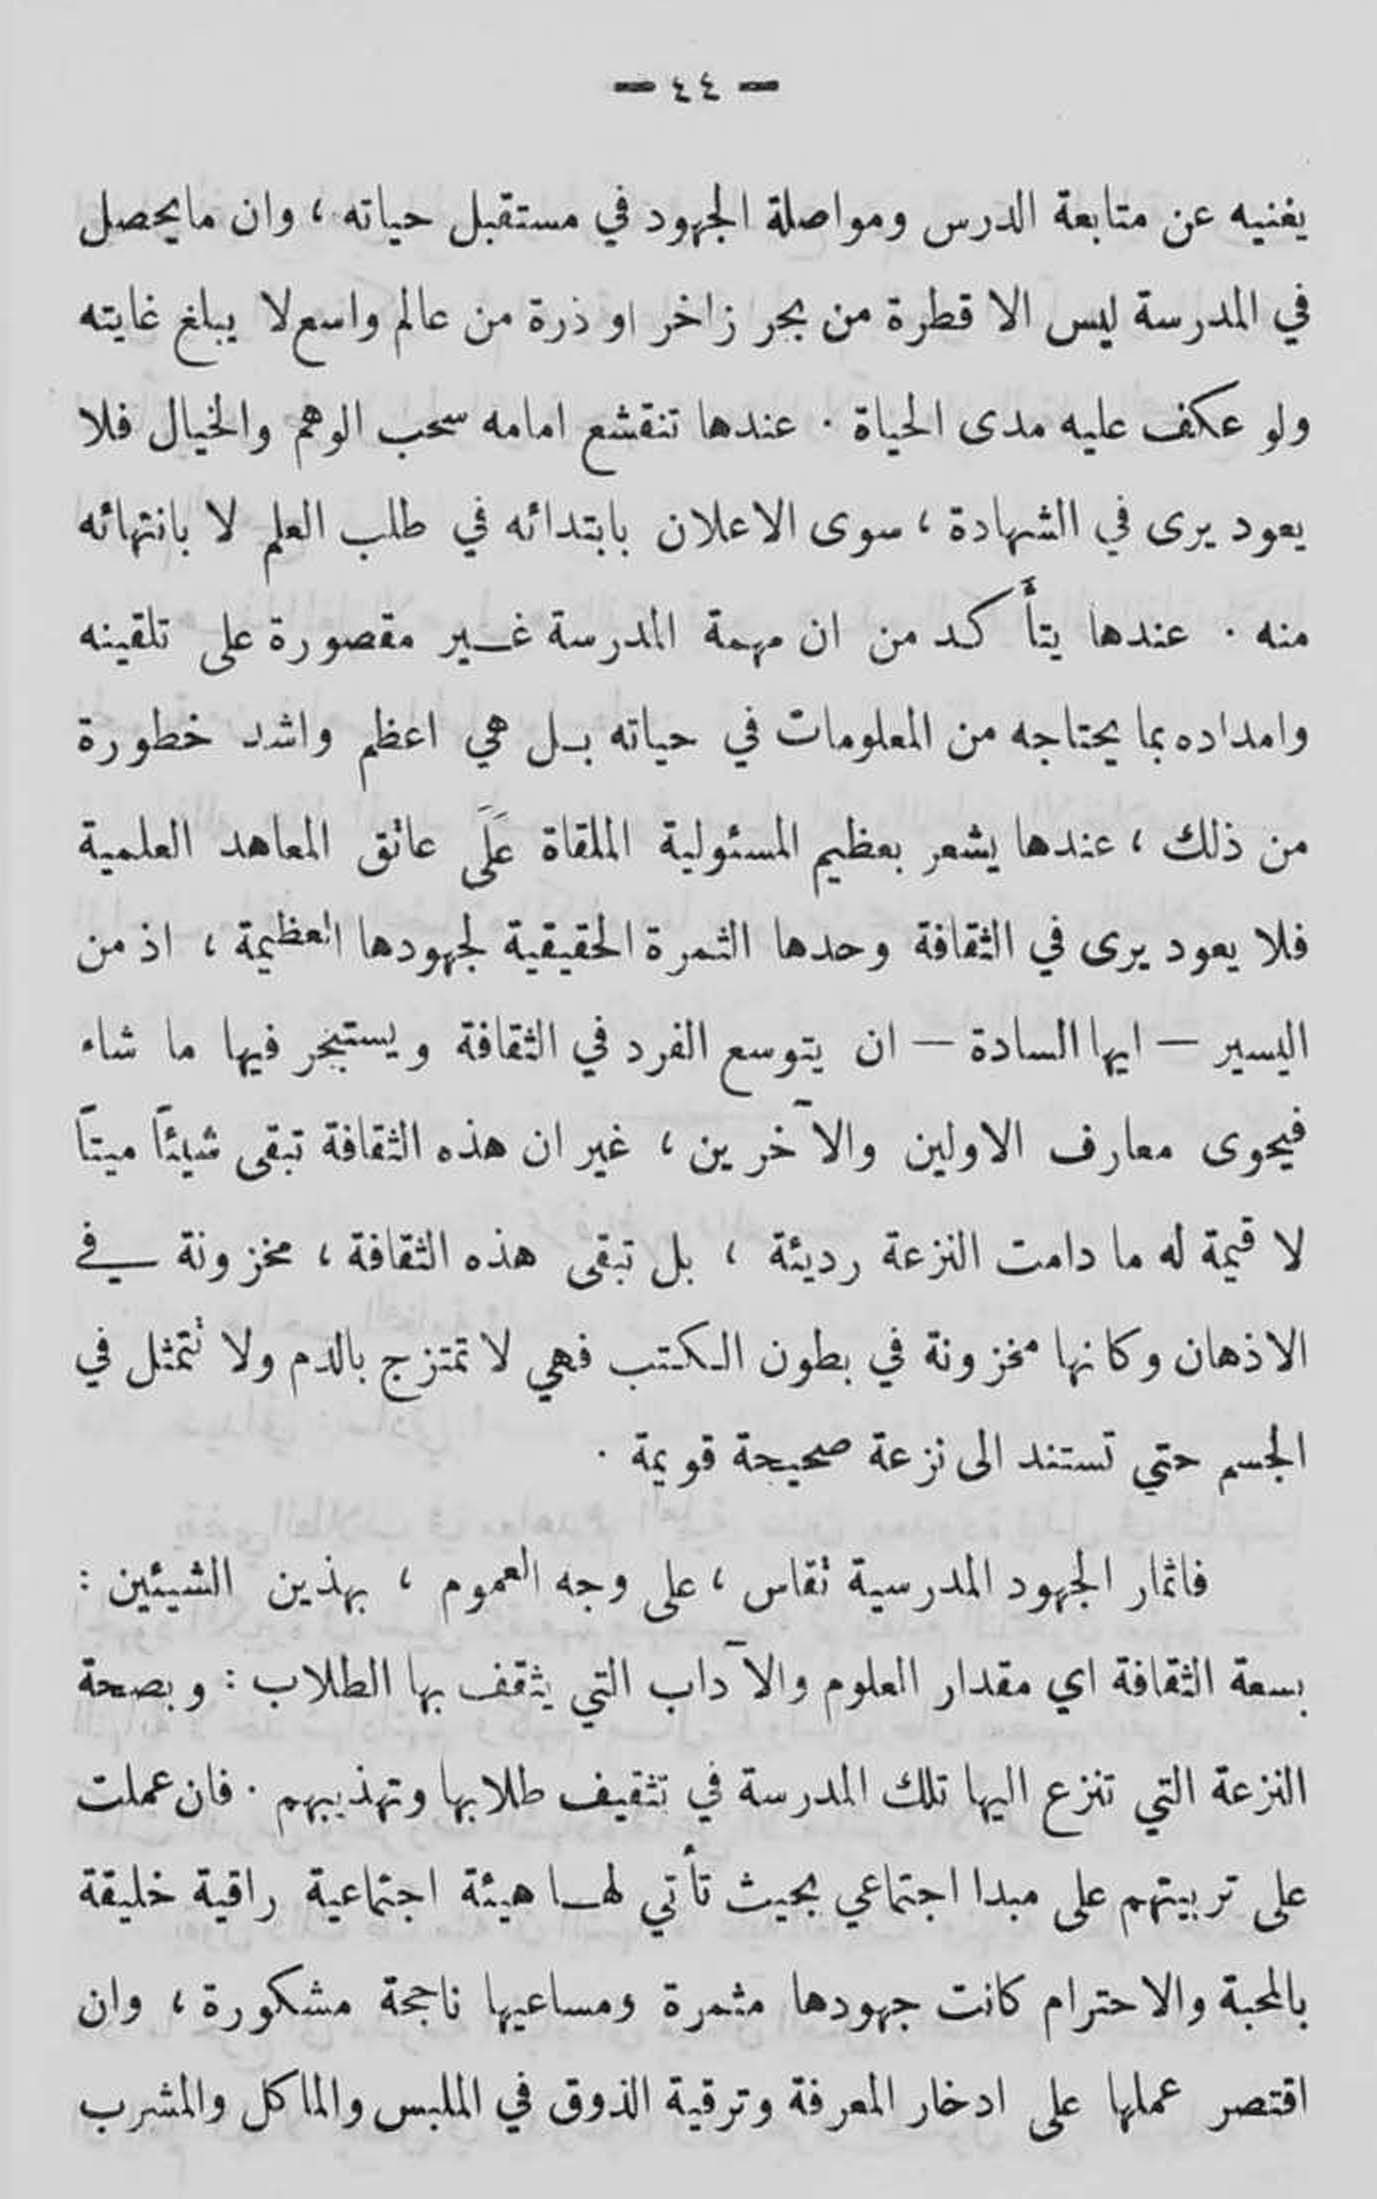 — ٤٤ —
يغنيه عن متابعة الدرس ومواصلة الجهود في مستقبل حياته ، وان مايحصل
في المدرسة ليس الا قطرة من بحر زاخر او ذرة من عالم واسع لا يبلغ غايته
ولو عكف عليه مدى الحياة . عندها تنقشع امامه سحب الوهم والخيال فلا
يعود يرى في الشهادة ، سوى الاعلان بابتدائه في طلب العلم لا بانتهائه
منه . عندها يتأكد من ان مهمة المدرسة غير مقصورة على تلقينه
وامداده بما يحتاجه من المعلومات في حياته بل هي اعظم واشد خطورة
من ذلك ، عندها يشعر بعظيم المسئولية الملقاة عَلَى عاتق المعاهد العلمية
فلا يعود يرى في الثقافة وحدها الثمرة الحقيقية لجهودها العظيمة ، اذ من
اليسير — ايها السادة — ان يتوسع الفرد في الثقافة ويستبحر فيها ما شاء
فيحوى معارف الاولين والآخرين ، غير ان هذه الثقافة تبقى شيئاً ميتاً
لا قيمة له ما دامت النزعة رديئة ، بل تبقى هذه الثقافة ، مخزونة في
الاذهان وكانها مخزونة في بطون الكتب فهي لا تمتزج بالدم ولا تتمثل في
الجسم حتي تستند الى نزعة صحيحة قويمة .
فاثمار الجهود المدرسية تقاس ، على وجه العموم ، بهذين الشيئين :
بسعة الثقافة اي مقدار العلوم والآداب التي يثقف بها الطلاب : وبصحة
النزعة التي تنزع اليها تلك المدرسة في تثقيف طلابها وتهذيبهم . فان عملت
على تربيتهم على مبدا اجتماعي بحيث تأتي لها هيئة اجتماعية راقية خليقة
بالمحبة والاحترام كانت جهودها مثمرة ومساعيها ناجحة مشكورة ، وان
اقتصر عملها على ادخار المعرفة وترقية الذوق في الملبس والماكل والمشرب